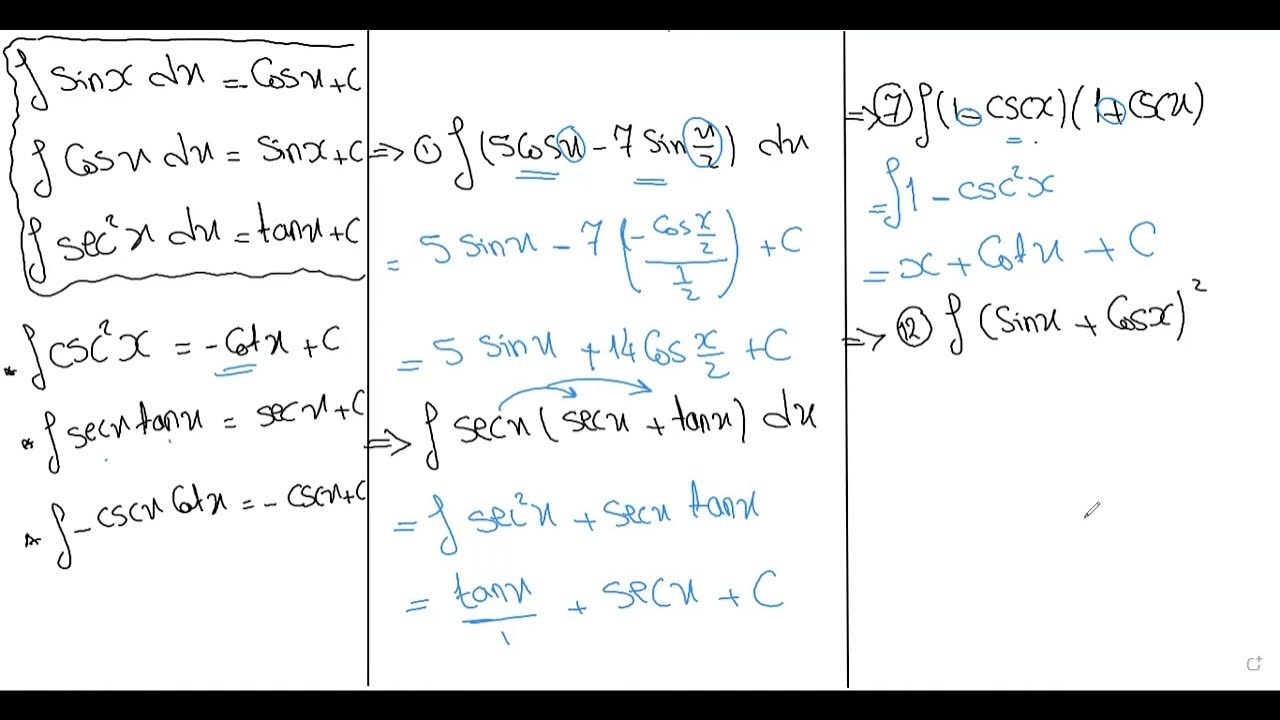 ∫ sinx dx = -Cosx+C
∫ Cosx dx = sinx+C
∫ sec²x dx = tanx+C
* ∫ csc²x = -Cotx +C
* ∫ secx tanx = secx+C
* ∫ -cscx Cotx = -cscx+C
=> ① ∫ (5Cosx - 7 Sin x/2) dx
= 5 sinx - 7 (-Cos x/2 / 1/2) + C
= 5 sinx + 14 Cos x/2 + C
=> ∫ secx (secx + tanx) dx
= ∫ sec²x + secx tanx
= tanx/1 + secx + C
=> ⑦ ∫ (1-cscx)(1+cscx)
= ∫ 1 - csc²x
= x + Cotx + C
=> ⑫ ∫ (sinx + Cosx)²